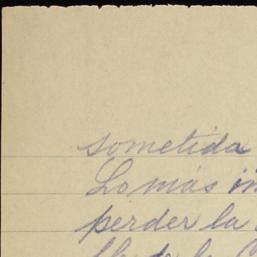 sometida
Lo más
perder la